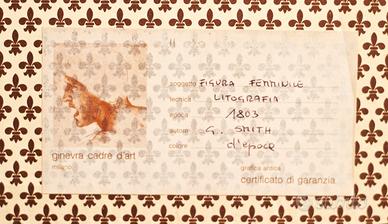 soggetto FIGURA FEMMINILE
tecnica LITOGRAFIA
epoca 1803
autore G. SMITH
colore d'epoca
ginevra cadre d'art
milano
grafica antica
certificato di garanzia